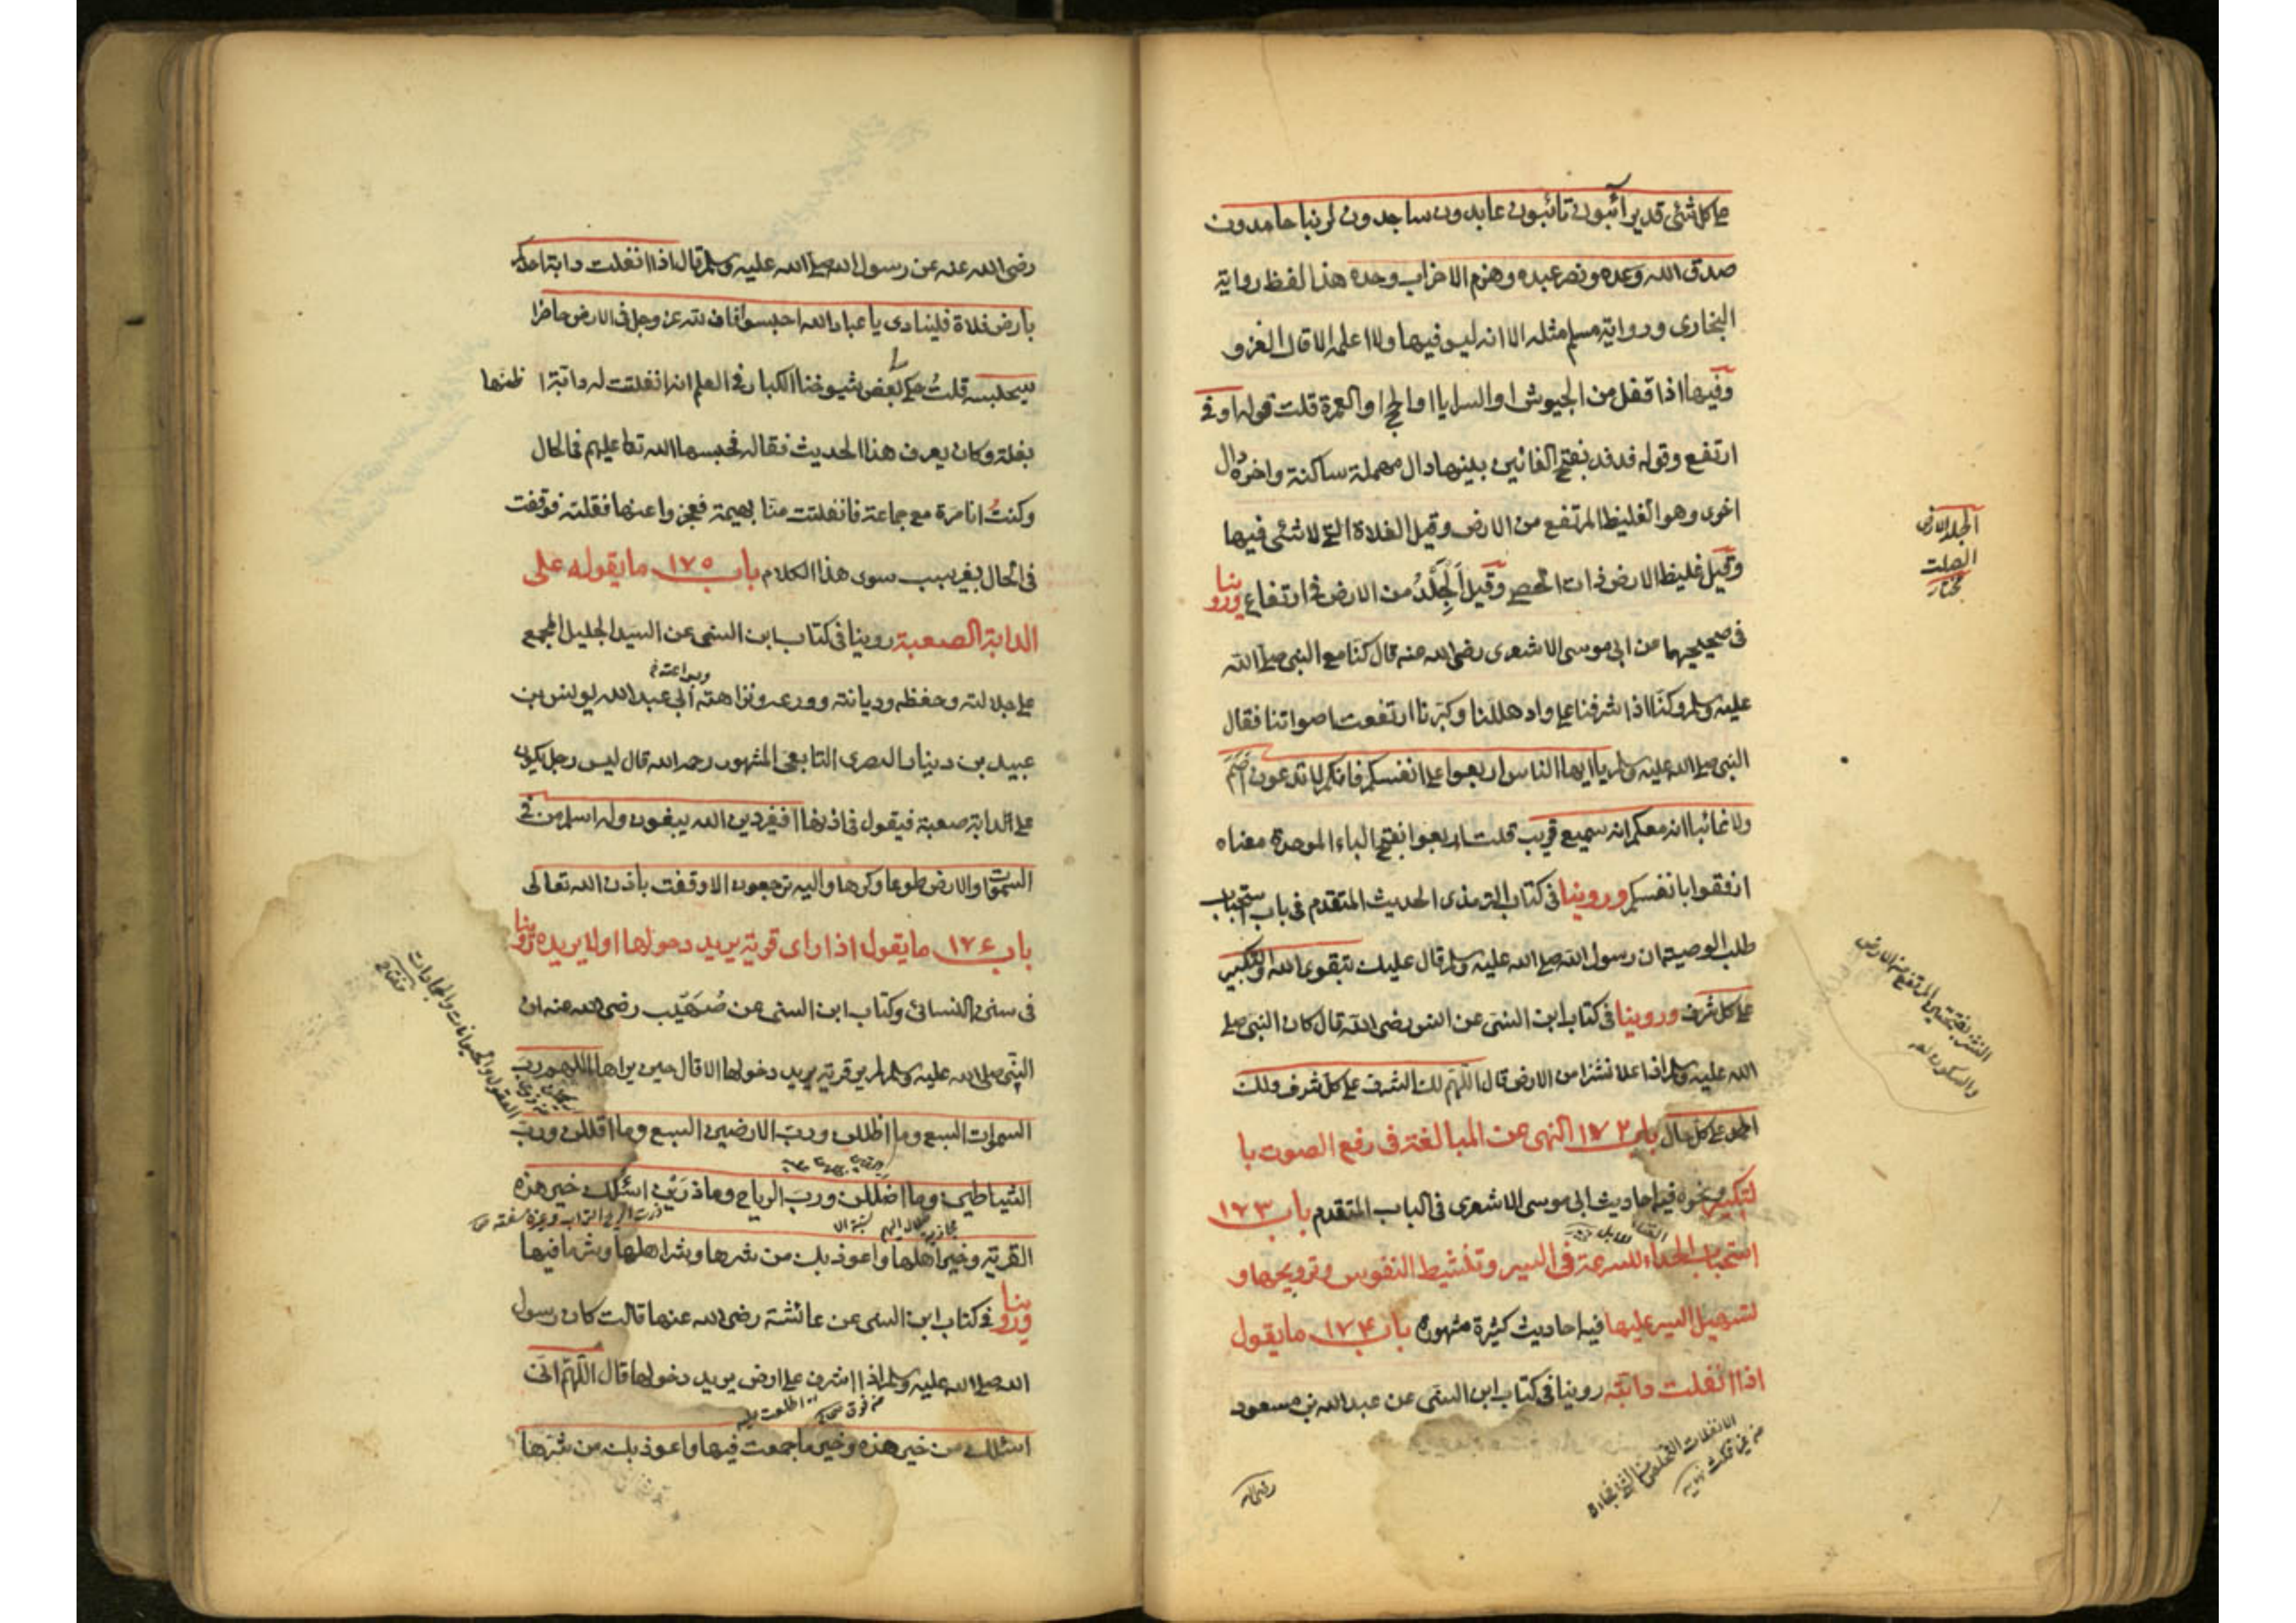 على كل شئ قدير آئبون تائبون عابدون ساجدون لربنا حامدون
صدق الله وعده ونصر عبده وهزم الاحزاب وحده هذا لفظ رواية
البخارى ورواية مسلم مثله الا انه ليس فيها ولا اعلمه الا قال الغزو
وفيها اذا قفل من الجيوش او السرايا او الحج او العمرة قلت قوله اوفى
ارتفع وقوله فدفد بفتح الفائين بينهما دال مهملة ساكنة واخره دال
اخرى وهو الغليظ المرتفع من الارض وقيل الفلاة التى لا شئى فيها
وقيل غليظ الارض ذات الحصى وقيل الجلد من الارض فى ارتفاع وروينا
فى صحيحيهما عن ابى موسى الاشعرى رضى الله عنه قال كنا مع النبى صلى الله
عليه وسلم وكنا اذا شرفنا على واد هللنا وكبرنا ارتفعت اصواتنا فقال
النبى صلى الله عليه وسلم يا ايها الناس اربعوا على انفسكم فانكم لا تدعون اصم
ولا غائبا انه معكم انه سميع قريب قلت اربعوا بفتح الباء الموحدة معناه
ارفقوا بانفسكم وروينا فى كتاب الترمذى الحديث المتقدم فى باب استحباب
طلب الوصية ان رسول الله صلى الله عليه وسلم قال عليك بتقوى الله والتكبير
على كل شرف وروينا فى كتاب ابن السنى عن انس رضى الله قال كان النبى صلى
الله عليه وسلم اذا علا نشزا من الارض قال اللهم لك الشرف على كل شرف ولك
الحمد على كل حال باب ١٧٢ النهى عن المبالغة فى رفع الصوت با
لتكبير ونحوه فيه احاديث ابى موسى الاشعرى فى الباب المتقدم باب ١٧٣
استحباب الحداء للسرعة فى السير وتنشيط النفوس وترويحها و
تسهيل السير عليها فيه احاديث كثيرة مشهوره باب ١٧٤ ما يقول
اذا انفلت دابته روينا فى كتاب ابن السنى عن عبد الله بن مسعود
رضى الله
الجلد الارض
الصلبة
مختار
النشز بفتحتين المرتفع من الارض
رضى الله عنه عن رسول الله صلى الله عليه وسلم قال اذا انفلت دابة احدكم
بارض فلاة فلينادى يا عباد الله احبسوا فان لله عز وجل فى الارض حاضرا
سيحبسه قلت حكى لى بعض شيوخنا الكبار فى العلم انه انفلتت له دابة اظنها
بغلة وكان يعرف هذا الحديث فقاله فحبسها الله تعالى عليهم فى الحال
وكنت انا مرة مع جماعة فانفلتت منا بهيمة فعجزوا عنها فقلته فوقفت
فى الحال بغير سبب سوى هذا الكلام باب ١٧٥ ما يقوله على
الدابة الصعبة روينا فى كتاب ابن السنى عن السيد الجليل المجمع
على جلالته وحفظه وديانته وورعه ونزاهته ابى عبد الله يونس بن
عبيد بن دينار البصرى التابعى المشهور رحمه الله قال ليس رجل يكون
على الدابة صعبة فيقول فى اذنها افغير دين الله يبغون وله اسلم من فى
السموات والارض طوعا وكرها واليه ترجعون الا وقفت باذن الله تعالى
باب ١٧٦ ما يقول اذا راى قرية يريد دخولها او لا يريده روينا
فى سنن النسائى وكتاب ابن السنى عن صهيب رضى الله عنه ان
النبى صلى الله عليه وسلم لم ير قرية يريد دخولها الا قال حين يراها اللهم رب
السموات السبع وما اظللن ورب الارضين السبع وما اقللن ورب
الشياطين وما اضللن ورب الرياح وما ذرين اسئلك خير هذه
القرية وخير اهلها واعوذ بك من شرها وشر اهلها وشر ما فيها
وروينا فى كتاب ابن السنى عن عائشة رضى الله عنها قالت كان رسول
الله صلى الله عليه وسلم اذا اشرف على ارض يريد دخولها قال اللهم انى
اسئلك من خير هذه وخير ما جمعت فيها واعوذ بك من شرها